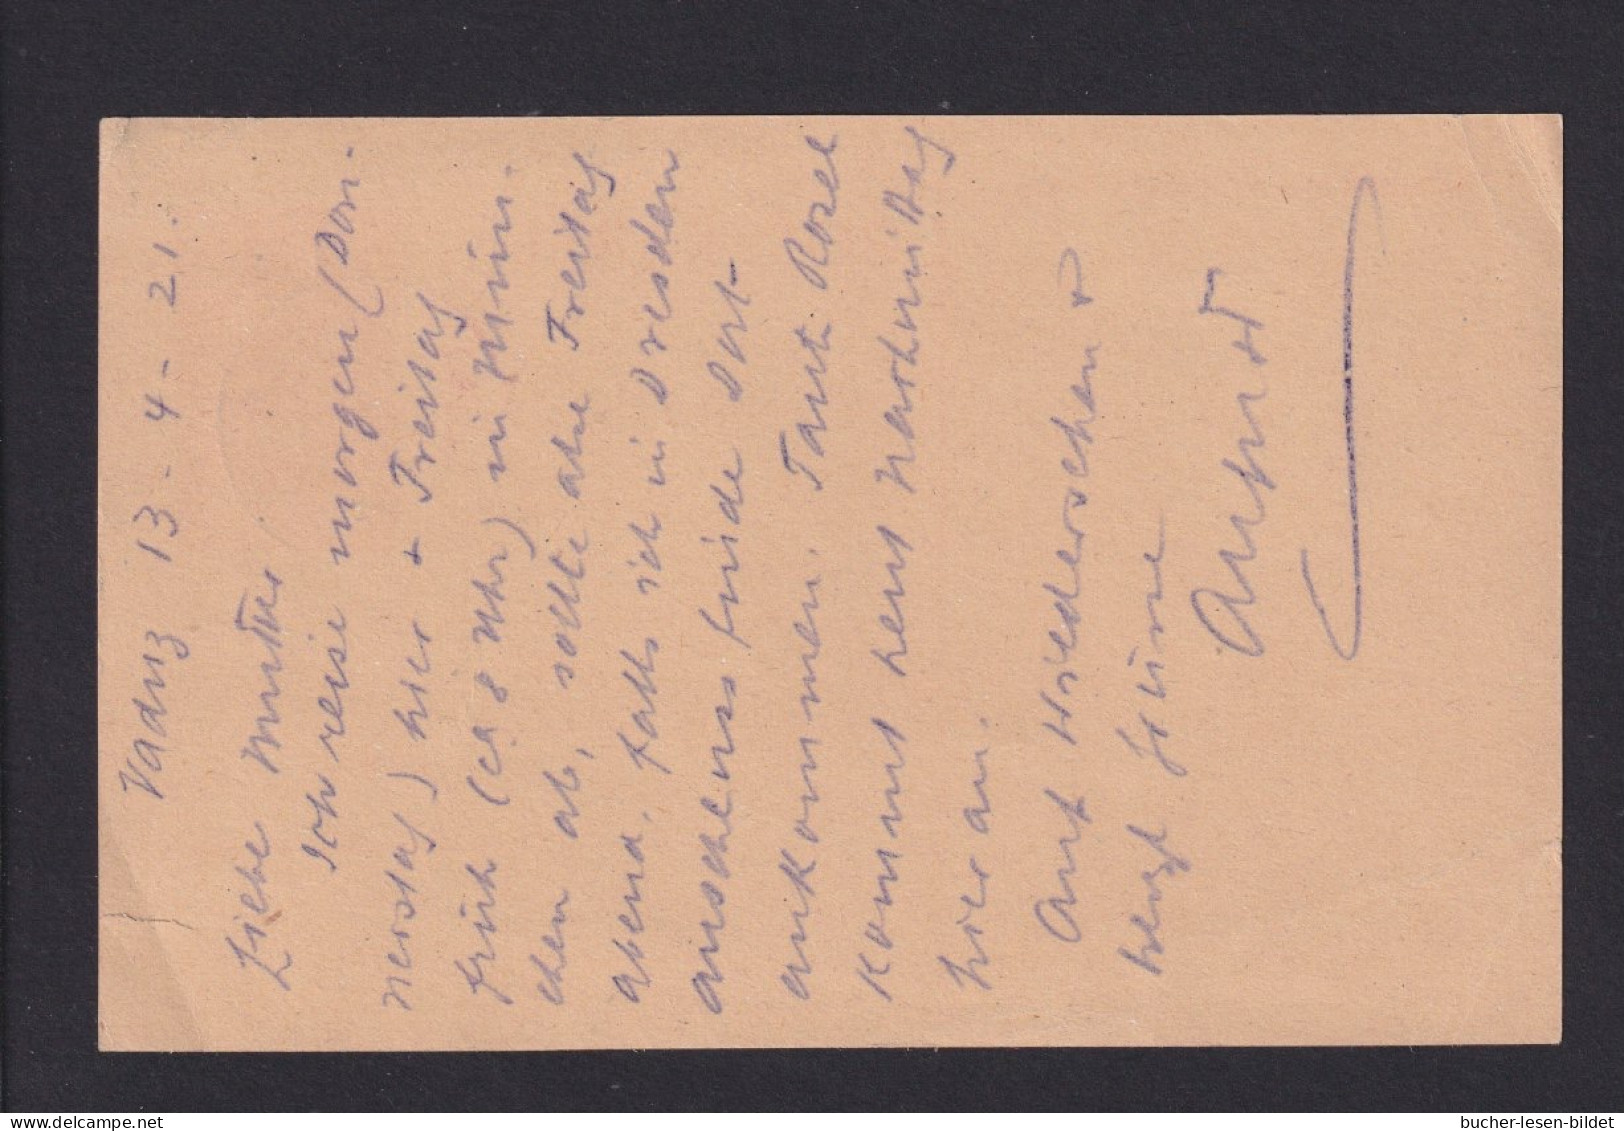 Vaduz 13 - 4 - 21.
Liebe Mutter
Ich reise morgen (Don-
nerstag) hier + Freitag
früh (ca 8 Uhr) in Mün-
chen ab, sollte also Freitag
abend, falls ich in Dresden
Anschluss finde dort
ankommen. Tante Rosel
kommt heut Nachmittag
hier an.
Auf Wiedersehen &
herzl Grüße
bucher-lesen-bildet